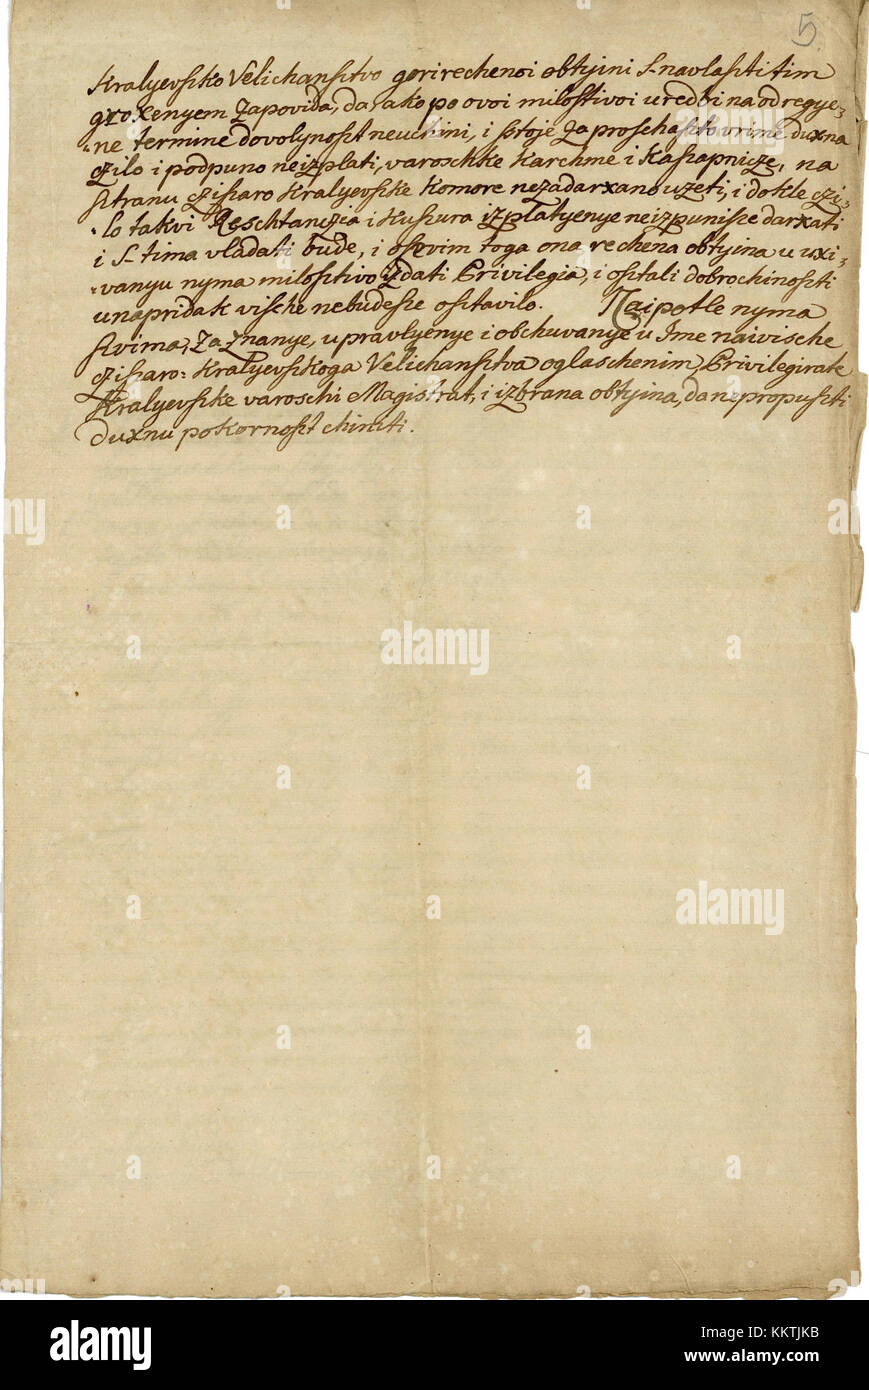 5
Kralyevsko Velichanstvo gorirechenoi obtyini S-navlastitim
groxenyem zapovida, da ako po ovoi milostivoi uredbi na odregye=
=ne termine dovolynost neuchini, i sstoje za proschasto vrime duxna
czilo i podpuno neizplati, varoschke Karchme i Kassapnicze, na
stranu czissaro Kralyevske Komore nezadarxano uzeti, i dokle czi=
=lo takvi Reschtanczia i Kussura izplatyenye neizpunisse darxati
i S-tima vladati bude, i osovim toga ona rechena obtyina u uxi=
=vanyu nyma milostivo izdati Privilegia, i ostali dobrochinosti
unapridak vische nebudesse ostavilo. Naipotle nyma
svima, za znanye, upravlyenye i obchuvanye u Ime naivische
czissaro=Kralyevskoga Velichanstva oglaschenim, Privilegirate
Kralyevske varoschi Magistrat, i izbrana obtyina, da nepropusti
duxnu pokornost chiniti.
alamy
alamy
alamy
alamy
alamy
a
a
a
a
a
a
a
a
a
alamy
Image ID: KKTJKB
www.alamy.com